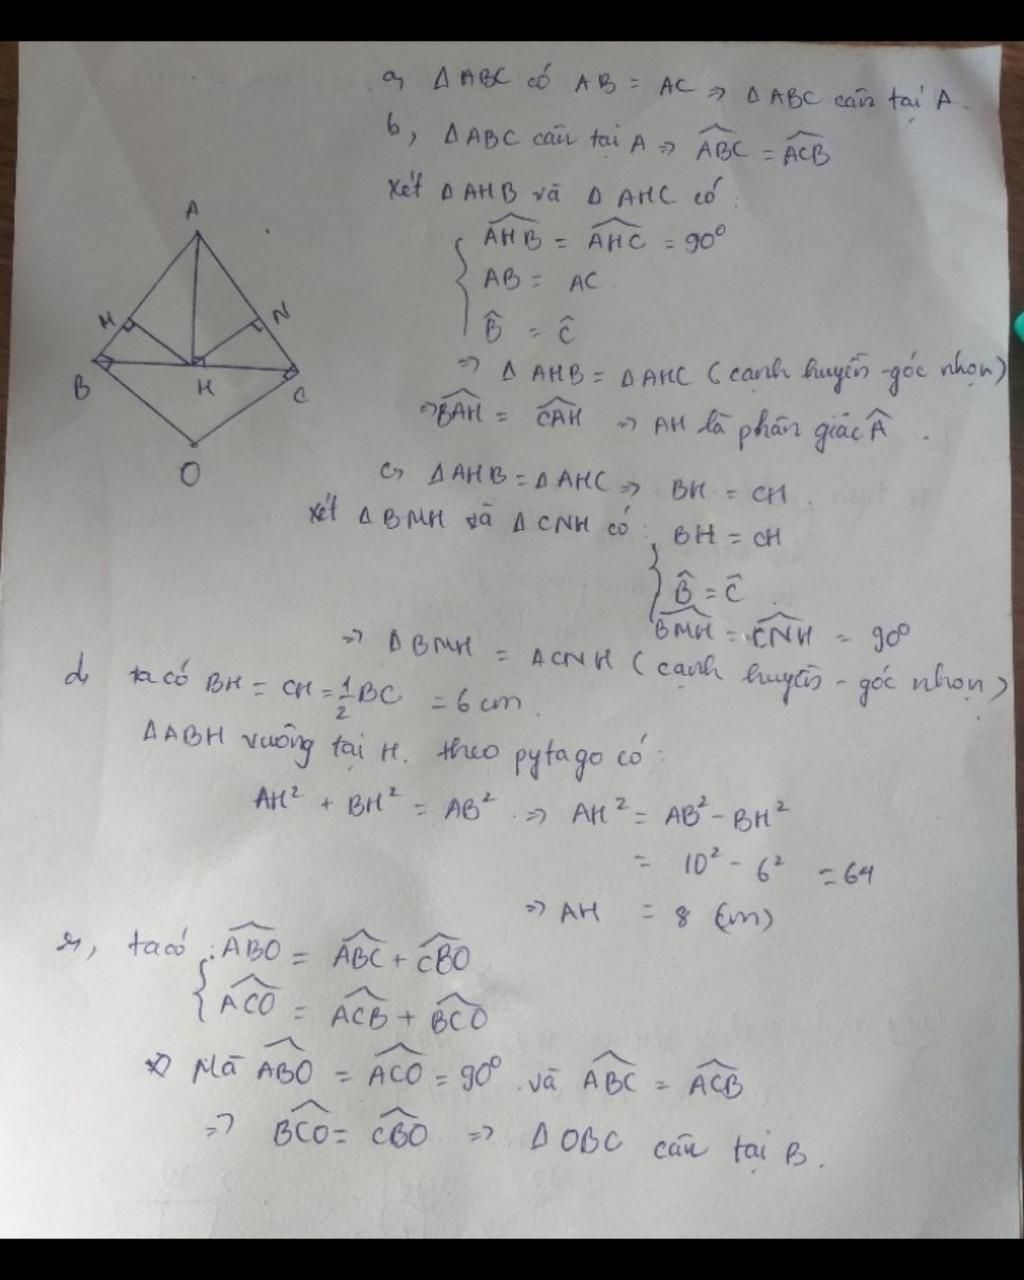 a, Δ ABC có AB = AC => Δ ABC cân tại A.
b, Δ ABC cân tại A => ABC = ACB
Xét Δ AHB và Δ AHC có:
AHB = AHC = 90°
AB = AC
B̂ = Ĉ
=> Δ AHB = Δ AHC (cạnh huyền - góc nhọn)
=> BAH = CAH => AH là phân giác Â.
A
M
N
B
H
C
O
c, Δ AHB = Δ AHC => BH = CH.
Xét Δ BMH và Δ CNH có: BH = CH
B̂ = Ĉ
BMH = CNH = 90°
=> Δ BMH = ΔCNH (cạnh huyền - góc nhọn)
d, ta có BH = CH = 1/2 BC = 6 cm.
Δ ABH vuông tại H. theo pytago có:
AH² + BH² = AB² => AH² = AB² - BH²
= 10² - 6² = 64
=> AH = 8 (cm)
ta có: ABO = ABC + CBO
ACO = ACB + BCO
Mà ABO = ACO = 90° và ABC = ACB
=> BCO = CBO => Δ OBC cân tại B.